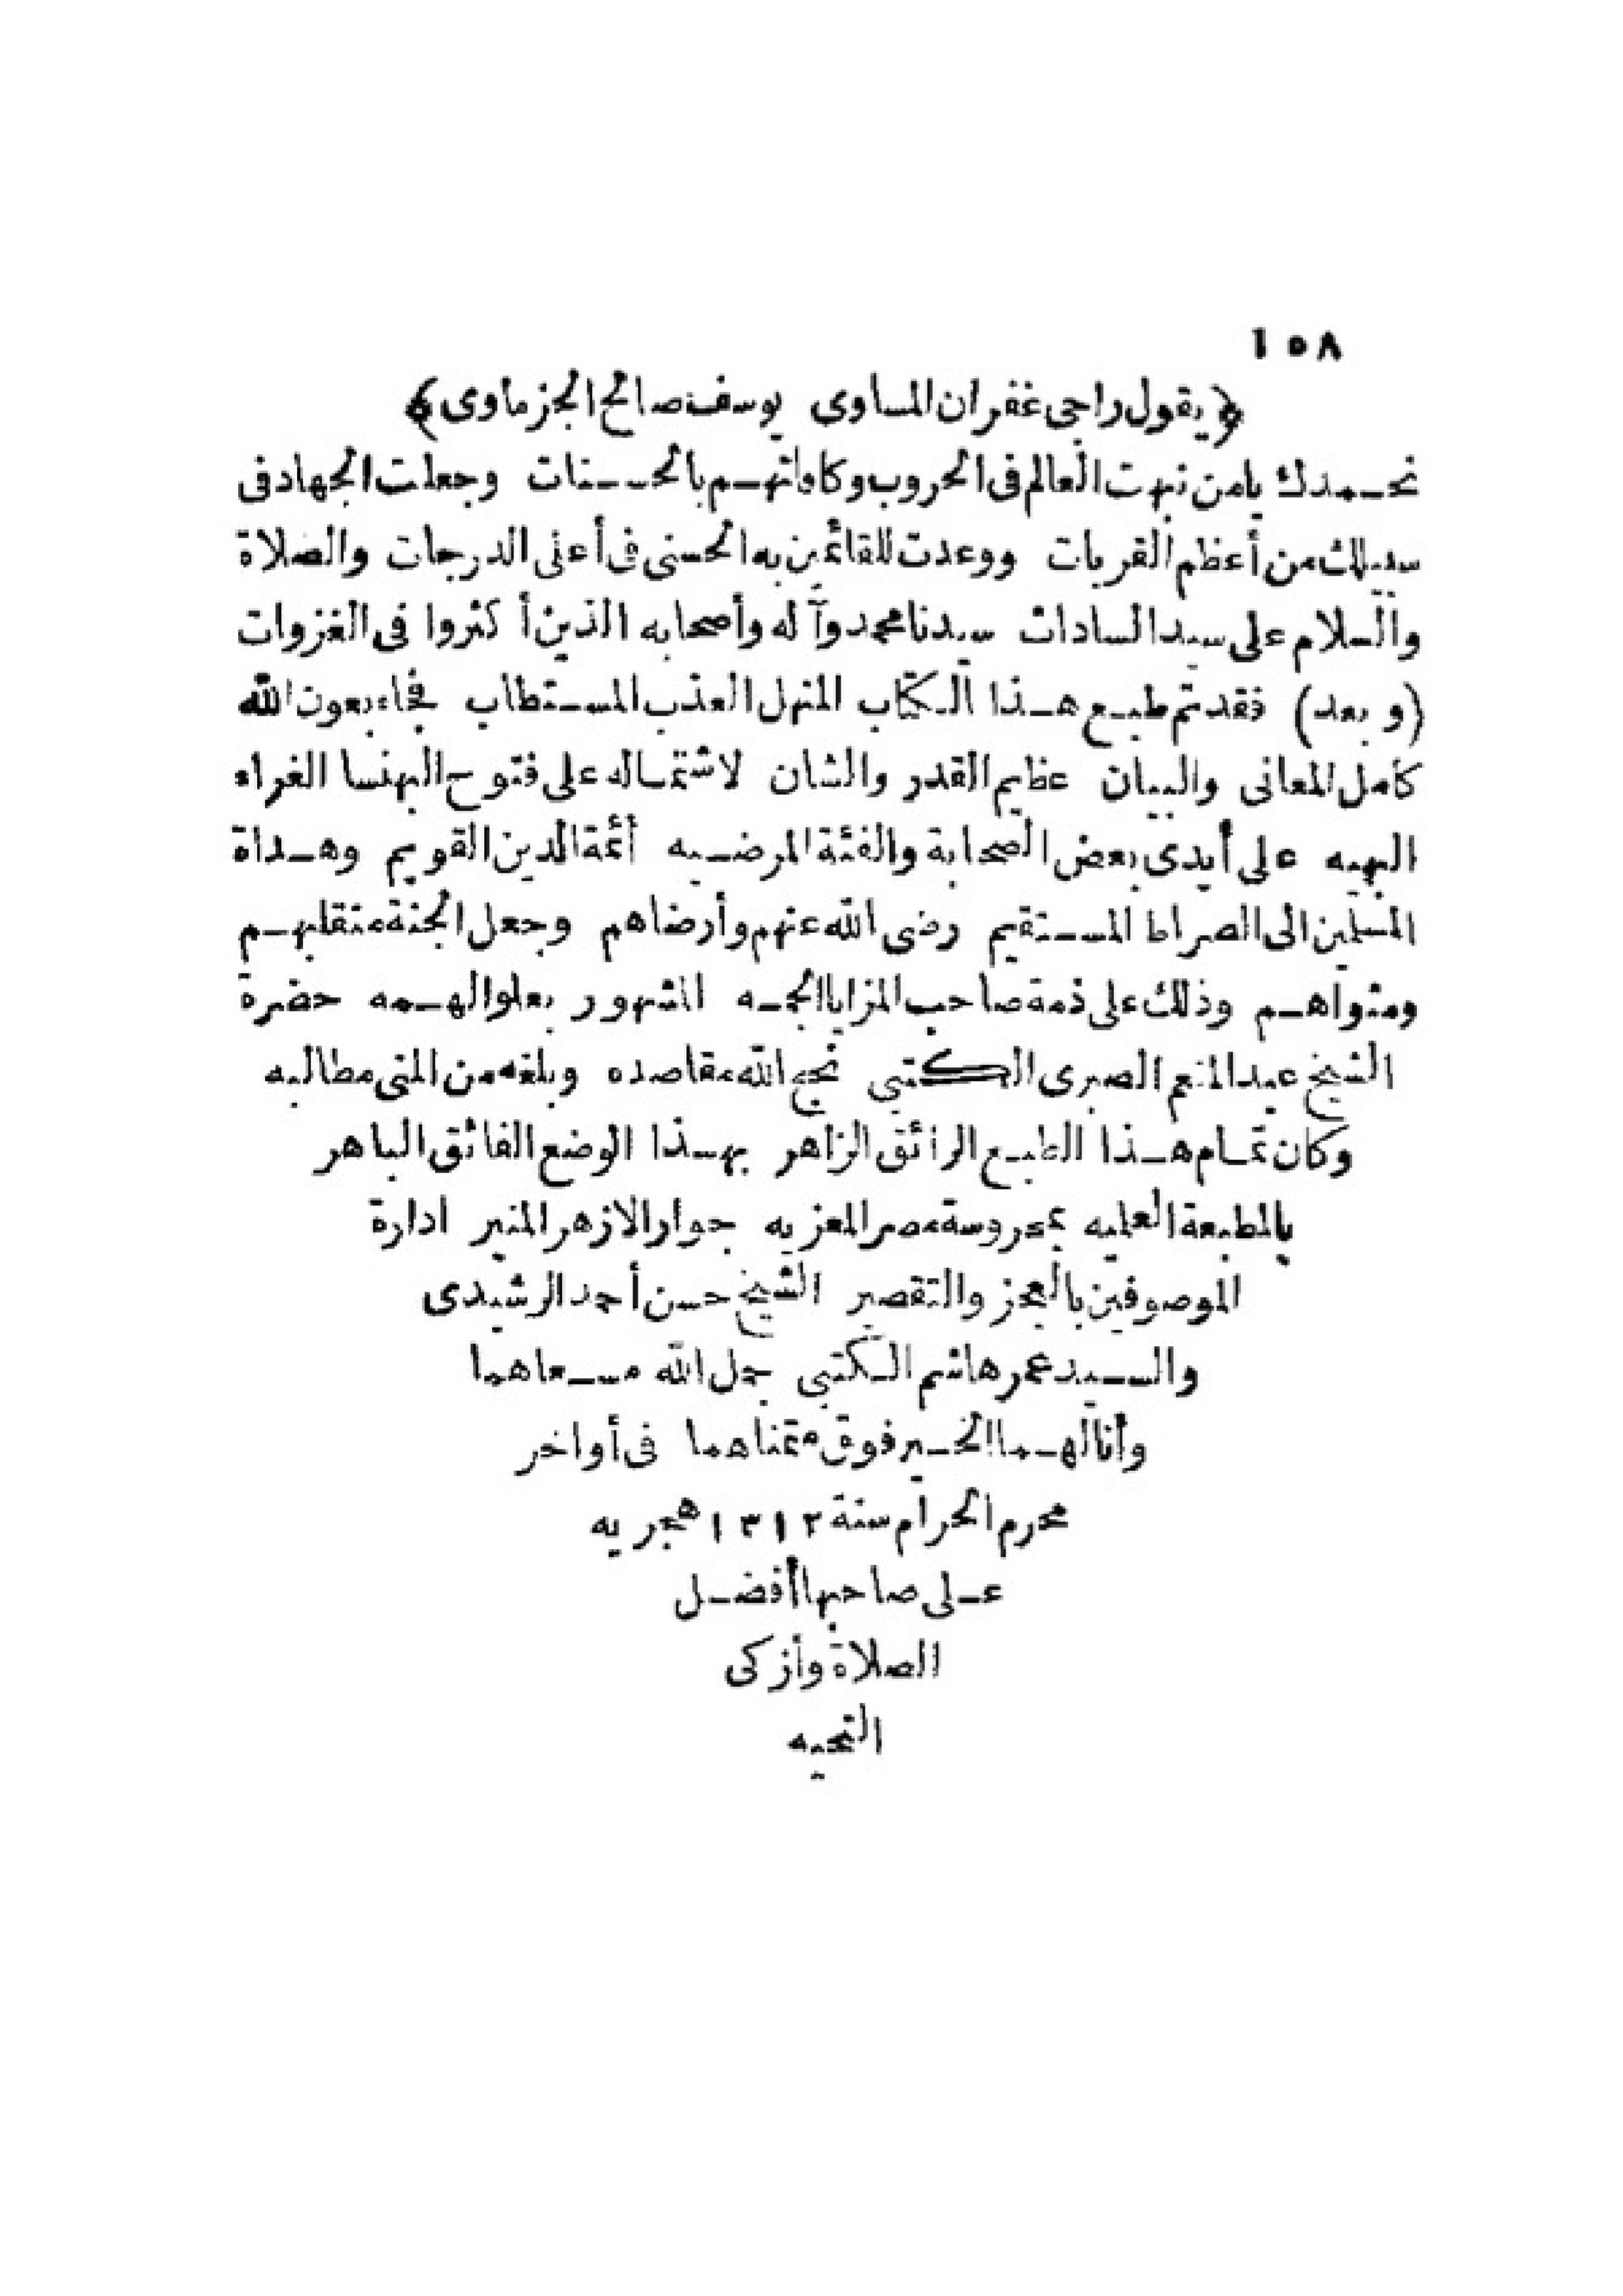 ١٥٨
﴿يقول راجى غفران المساوى يوسف صالح الجزماوى﴾
نحمدك يامن نبهت العالم فى الحروب وكافأتهم بالحسنات وجعلت الجهاد فى
سبيلك من أعظم القربات ووعدت للقائمين به الحسنى فى أعلى الدرجات والصلاة
والسلام على سيد السادات سيدنا محمد وآله وأصحابه الذين أكثروا فى الغزوات
(وبعد) فقد تم طبع هذا الكتاب المنهل العذب المستطاب فجاء بعون الله
كامل المعانى والبيان عظيم القدر والشان لاشتماله على فتوح البهنسا الغراء
البهيه على أيدى بعض الصحابة والفئة المرضيه أئمة الدين القويم وهداة
المسلمين الى الصراط المستقيم رضى الله عنهم وأرضاهم وجعل الجنة متقلبهم
ومثواهم وذلك على ذمة صاحب المزايا الجمه المشهور بعلو الهمه حضرة
الشيخ عبد المنعم الصبرى الكتبى نجح الله مقاصده وبلغه من المنى مطالبه
وكان تمام هذا الطبع الرائق الزاهر بهذا الوضع الفائق الباهر
بالمطبعة العليه بمحروسة مصر المعزيه جوار الازهر المنير ادارة
الموصوفين بالعجز والتقصير الشيخ حسن أحمد الرشيدى
والسيد عمر هاشم الكتبى جل الله مسعاهما
وأنالهما الخير فوق متمناهما فى أواخر
محرم الحرام سنة ١٣١٢ هجريه
على صاحبها أفضل
الصلاة وأزكى
التحيه